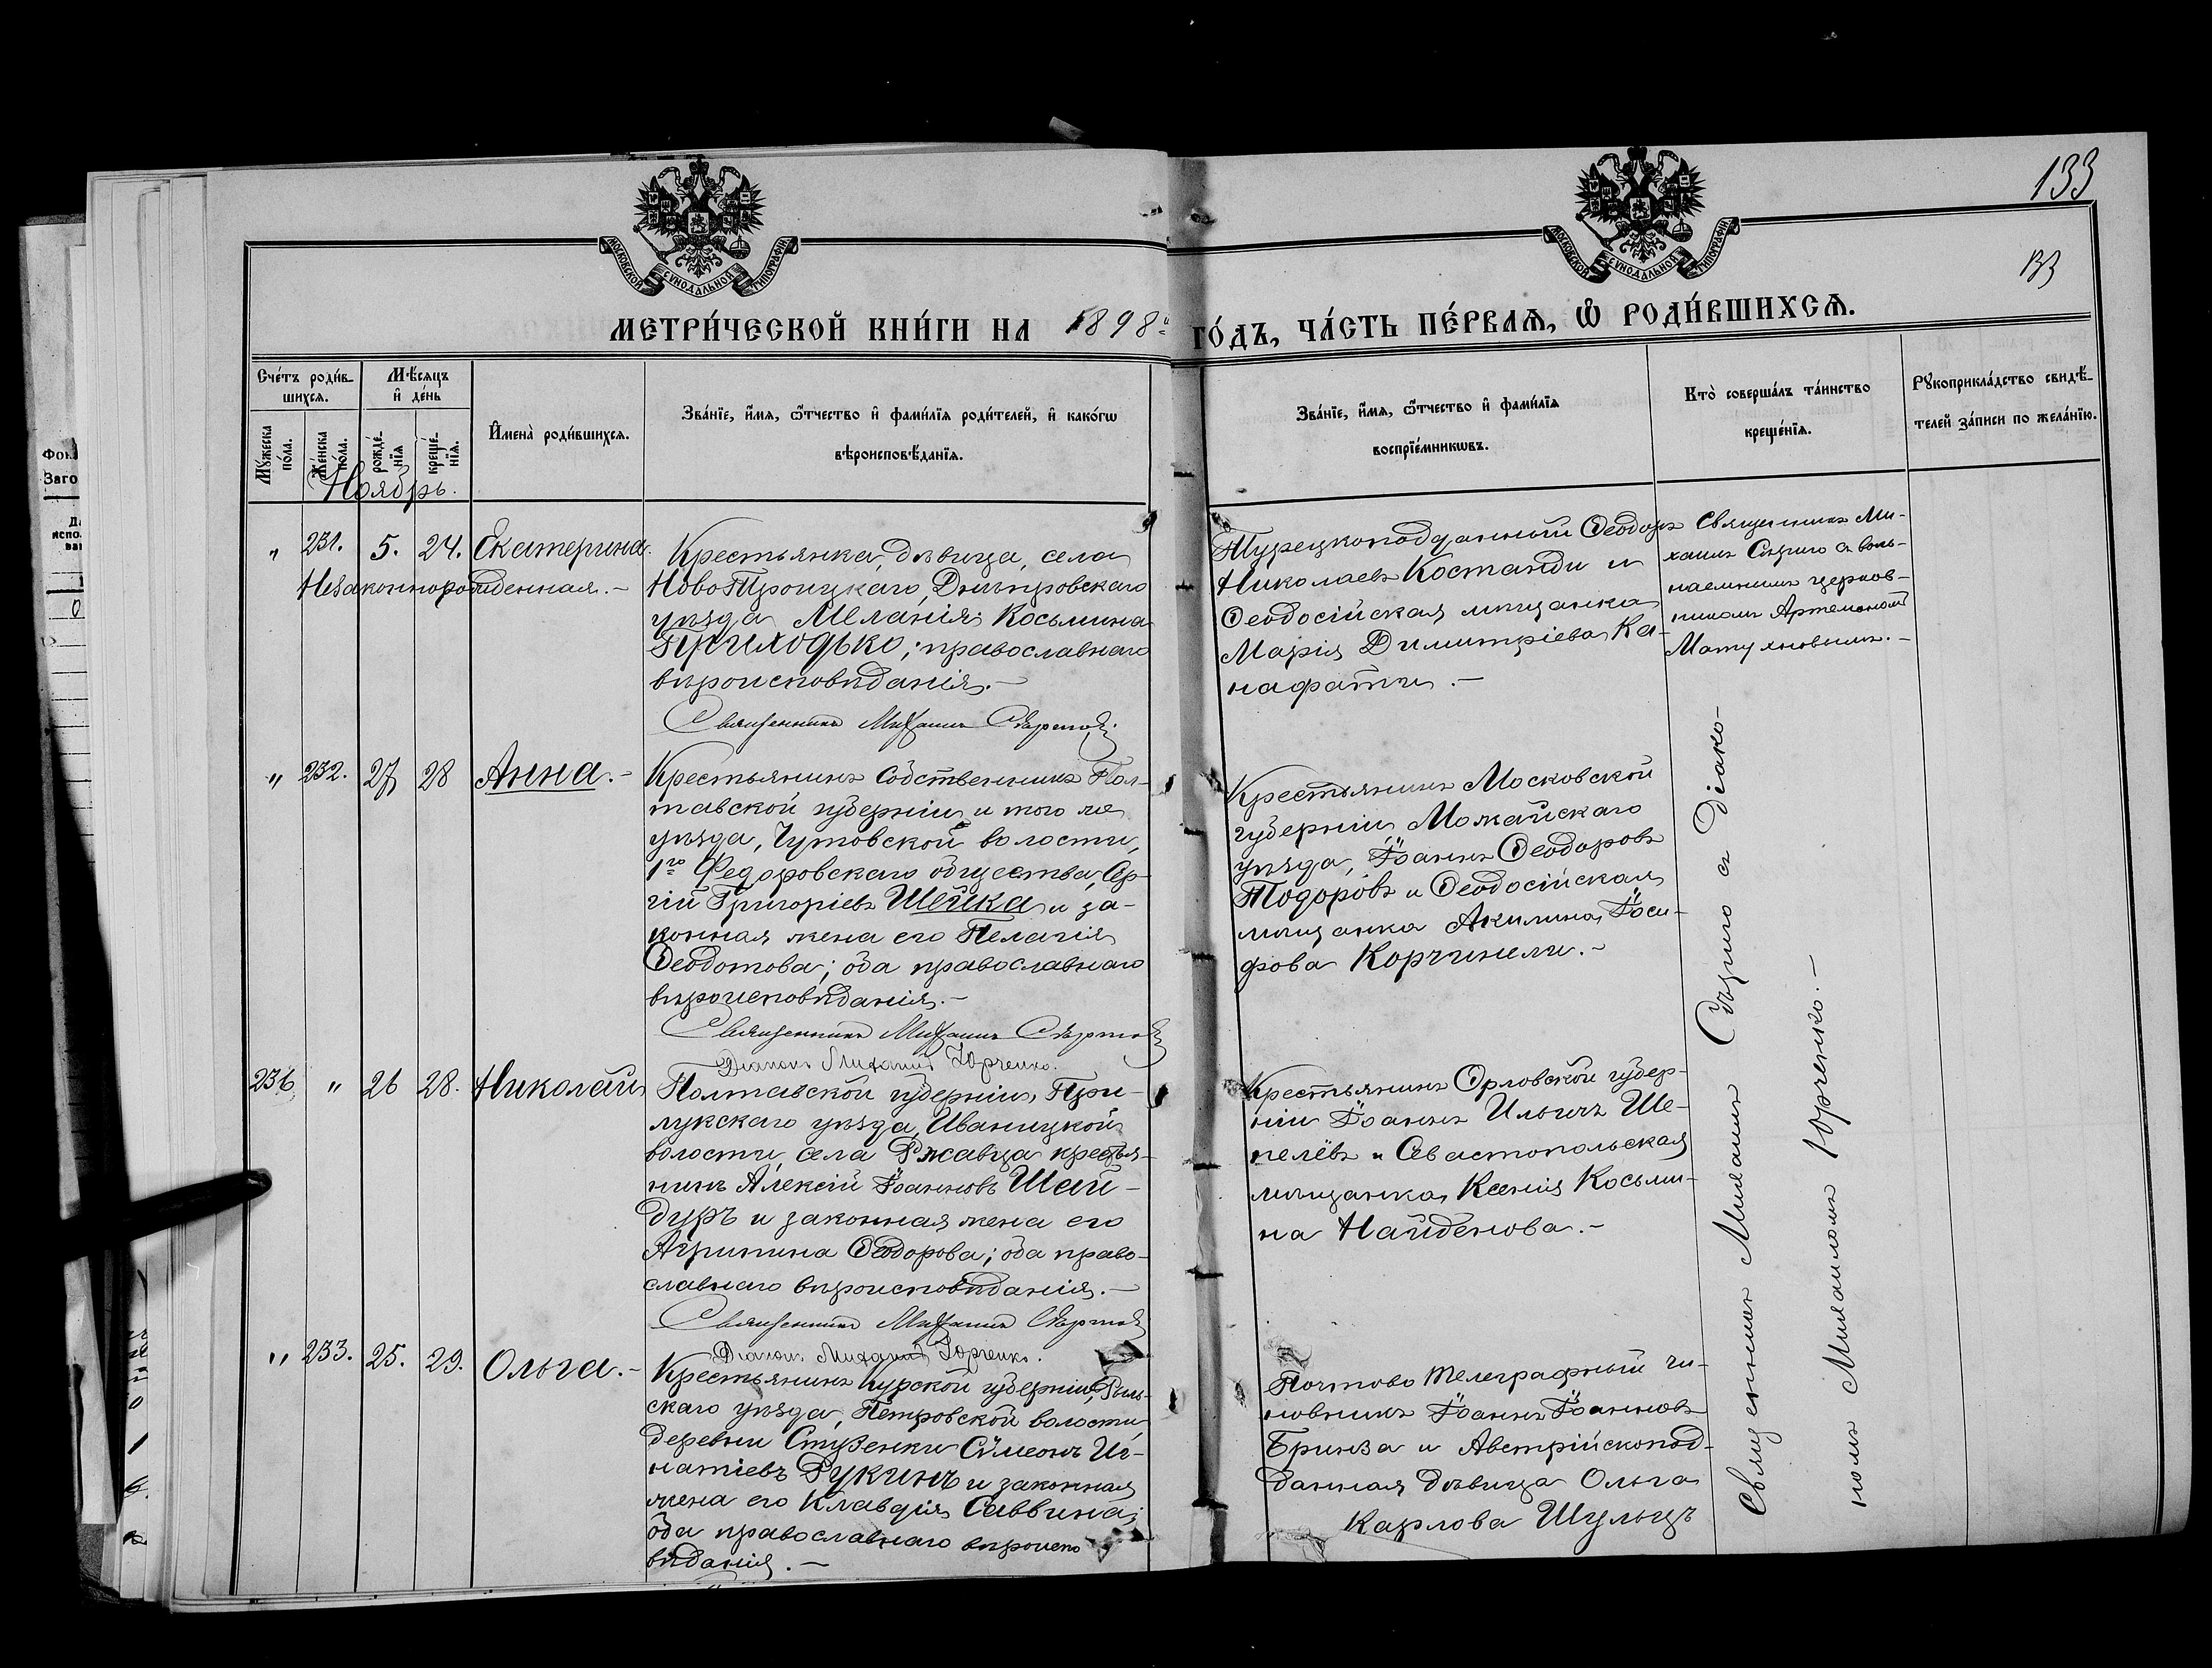 133
133
МОСКОВСКОЙ СѴНОДАЛЬНОЙ ТИПОГРАФІИ.
МОСКОВСКОЙ СѴНОДАЛЬНОЙ ТИПОГРАФІИ.
МЕТРИ́ЧЕСКОЙ КНИ́ГИ НА 1898й ГО́ДЪ, ЧА́СТЬ ПЕ́РВАѦ, Ѡ҆ РОДИ́ВШИХСѦ.
Сче́тъ роди́в-
шихсѧ.
Мꙋ́жеска
по́ла.
Же́нска
по́ла.
Мѣ́сѧцъ
и҆ де́нь
рожде́-
нїѧ
креще́-
нїѧ.
И҆мена̀ роди́вшихсѧ.
Зва́нїе, и҆́мѧ, ѻ҆́тчество и҆ фами́лїѧ роди́телей, и҆ како́гѡ
вѣроисповѣ́данїѧ.
Зва́нїе, и҆́мѧ, ѻ҆́тчество и҆ фами́лїѧ
воспрїе́мникѡвъ.
Кто̀ соверша́лъ та́инство
креще́нїѧ.
Рꙋкоприкла́дство свидѣ́-
телей за́писи по жела́нїю.
Ноябрь.
" 231. 5. 24. Екатерина.
Незаконнорожденная.-
Крестьянка, дѣвица, села
НовоТроицкаго, Днѣпровскаго
уѣзда Меланія Косьмина
Приходько; православнаго
вѣроисповѣданія.-
Священникъ Михаилъ
Турецкоподданный Ѳеодоръ
Николаевъ Костанди и
Ѳеодосійская мѣщанка
Марія Димитріева Ка-
нафати.-
Священникъ Ми-
хаилъ съ воль-
наемнымъ церков-
никомъ Артемономъ
Матухновымъ.-
" 232. 27 28 Анна.-
Крестьянинъ Собственникъ Пол-
тавской губерніи и того же
уѣзда, Чутовской волости,
1го Федоровскаго общества, Сер-
гій Григоріевъ Шейка и за-
конная жена его Пелагія
Ѳеодотова; оба православнаго
вѣроисповѣданія.-
Священникъ Михаилъ
Діаконъ Михаилъ Юрченко.
Крестьянинъ Московской
губерніи, Можайскаго
уѣзда, Іоаннъ Ѳеодоровъ
Тодоровъ и Ѳеодосійская
мѣщанка Акилина Іоси-
фова Корчинели.-
236 " 26 28. Николай
Полтавской губерніи, При-
лукскаго уѣзда, Иваницкой
волости, села Ржавца крестья-
нинъ Алексій Іоанновъ Шай-
дуръ и законная жена его
Агрипина Ѳеодорова; оба право-
славнаго вѣроисповѣданія.-
Священникъ Михаилъ
Діаконъ Михаилъ Юрченко.
Крестьянинъ Орловской губер-
ніи Іоаннъ Ильичъ Ше-
пелёвъ и Севастопольская
мѣщанка Ксенія Косьми-
на Найденова.-
" 233. 25. 29. Ольга.-
Крестьянинъ Курской губерніи, Рыль-
скаго уѣзда, Петровской волости,
деревни Студенки Сѵмеонъ Иг-
натіевъ Рукинъ и законная
жена его Клавдія Саввина;
оба православнаго вѣроиспо
вѣданія.-
Почтово телеграфный чи-
новникъ Іоаннъ Іоанновъ
Бринза и Австрійскопод-
данная дѣвица Ольга
Карлова Шульцъ
Священникъ Михаилъ съ Діако-
номъ Михаиломъ Юрченко.-